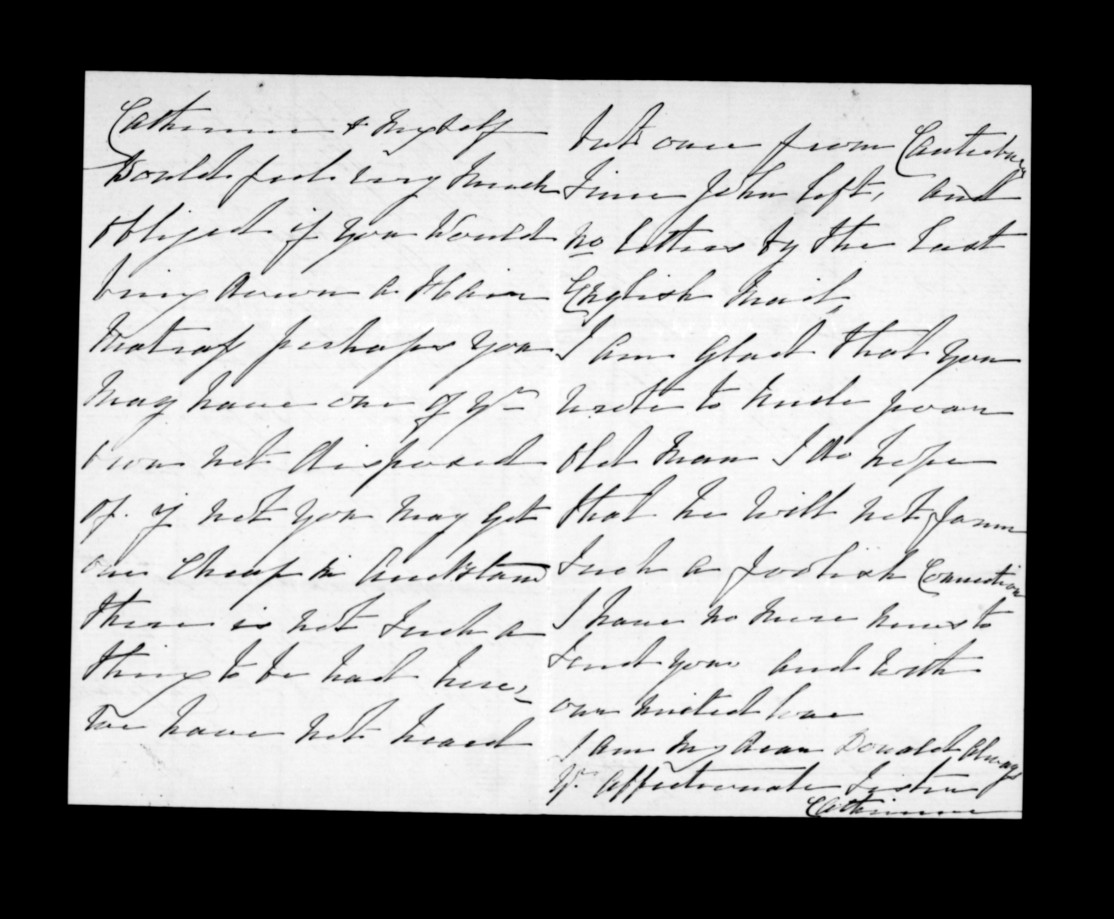 Catherine & myself
Would feel very much
obliged if you would
bring down a Hair
Matrass perhaps you
may have one of Yr
own not disposed
of. if not you may get
one cheap in Auckland
there is not such a
thing to be had here,
We have not heard
but once from Canterbury
since John left, and
no letters by the last
English Mail,
I am glad that you
wrote to Uncle poor
old man I do hope
that he will not form
such a foolish Connection
I have no more news to
send you and with
our united love
I am My dear Donald always
Yr. affectionate Sister
Catherine